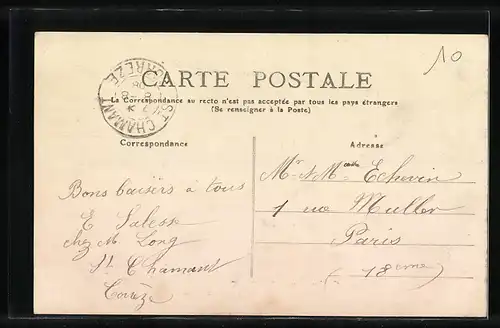 10
ST CHAMANT
CORREZE
CARTE POSTALE
La Correspondance au recto n'est pas acceptée par tous les pays étrangers
(Se renseigner à la Poste)
Correspondance
Adresse
Bons baisers à tous
E Salesse
chez M. Long
St. Chamant
Corrèze
Mr & Mme Echevin
1 rue Muller
Paris
(18eme)